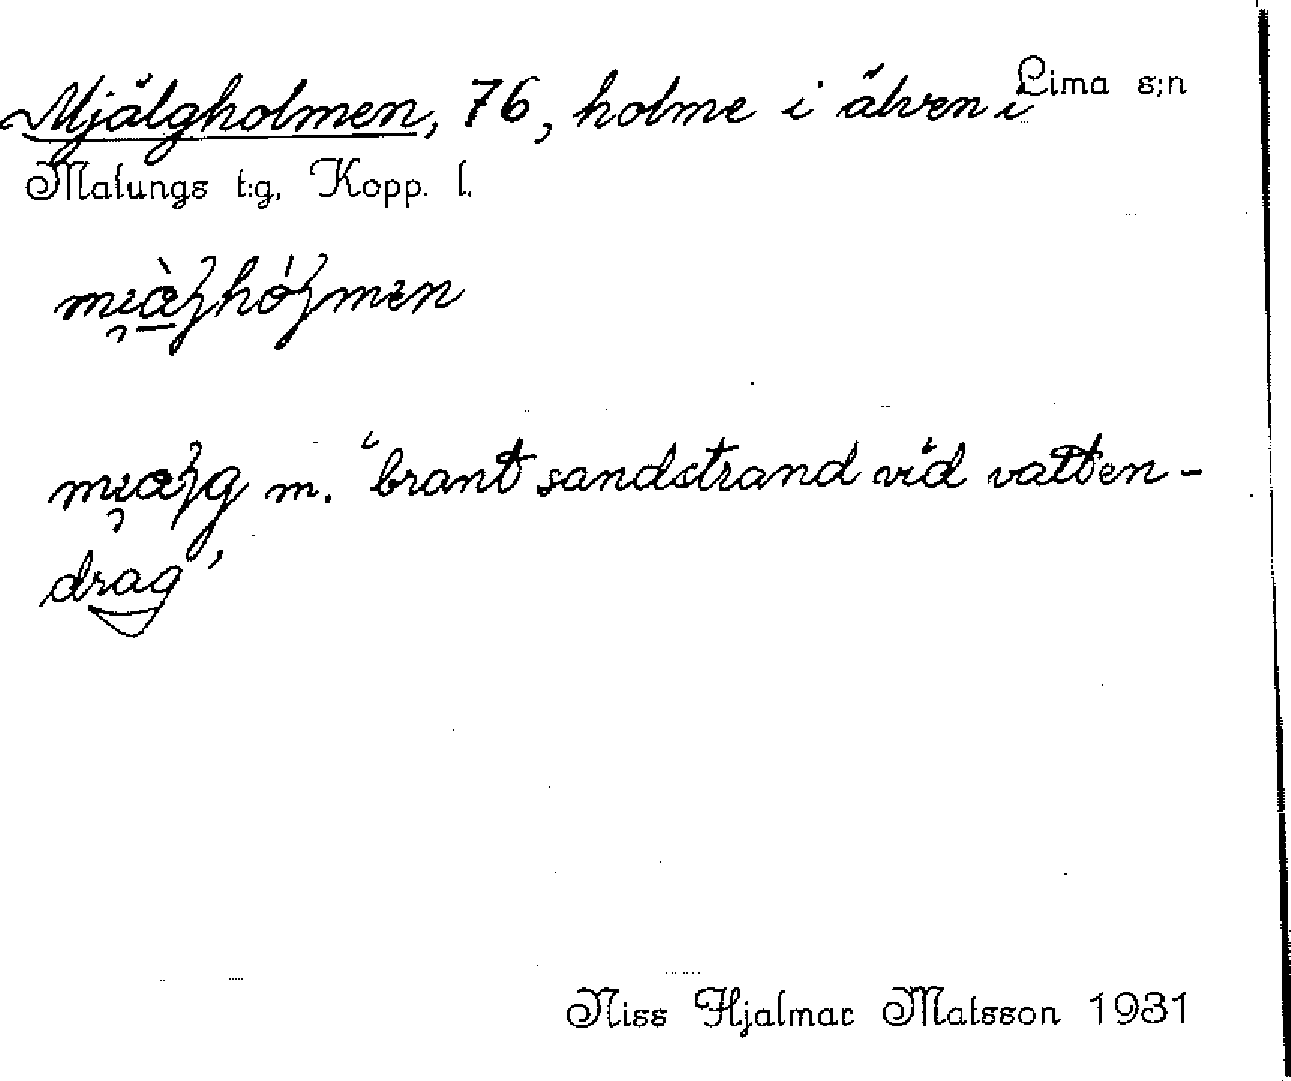 Mjälgholmen, 76, holme i älven i Lima s:n
Malungs t:g, Kopp. l.
m. "brant sandstrand vid vatten-
drag"
Niss Hjalmar Matsson 1931